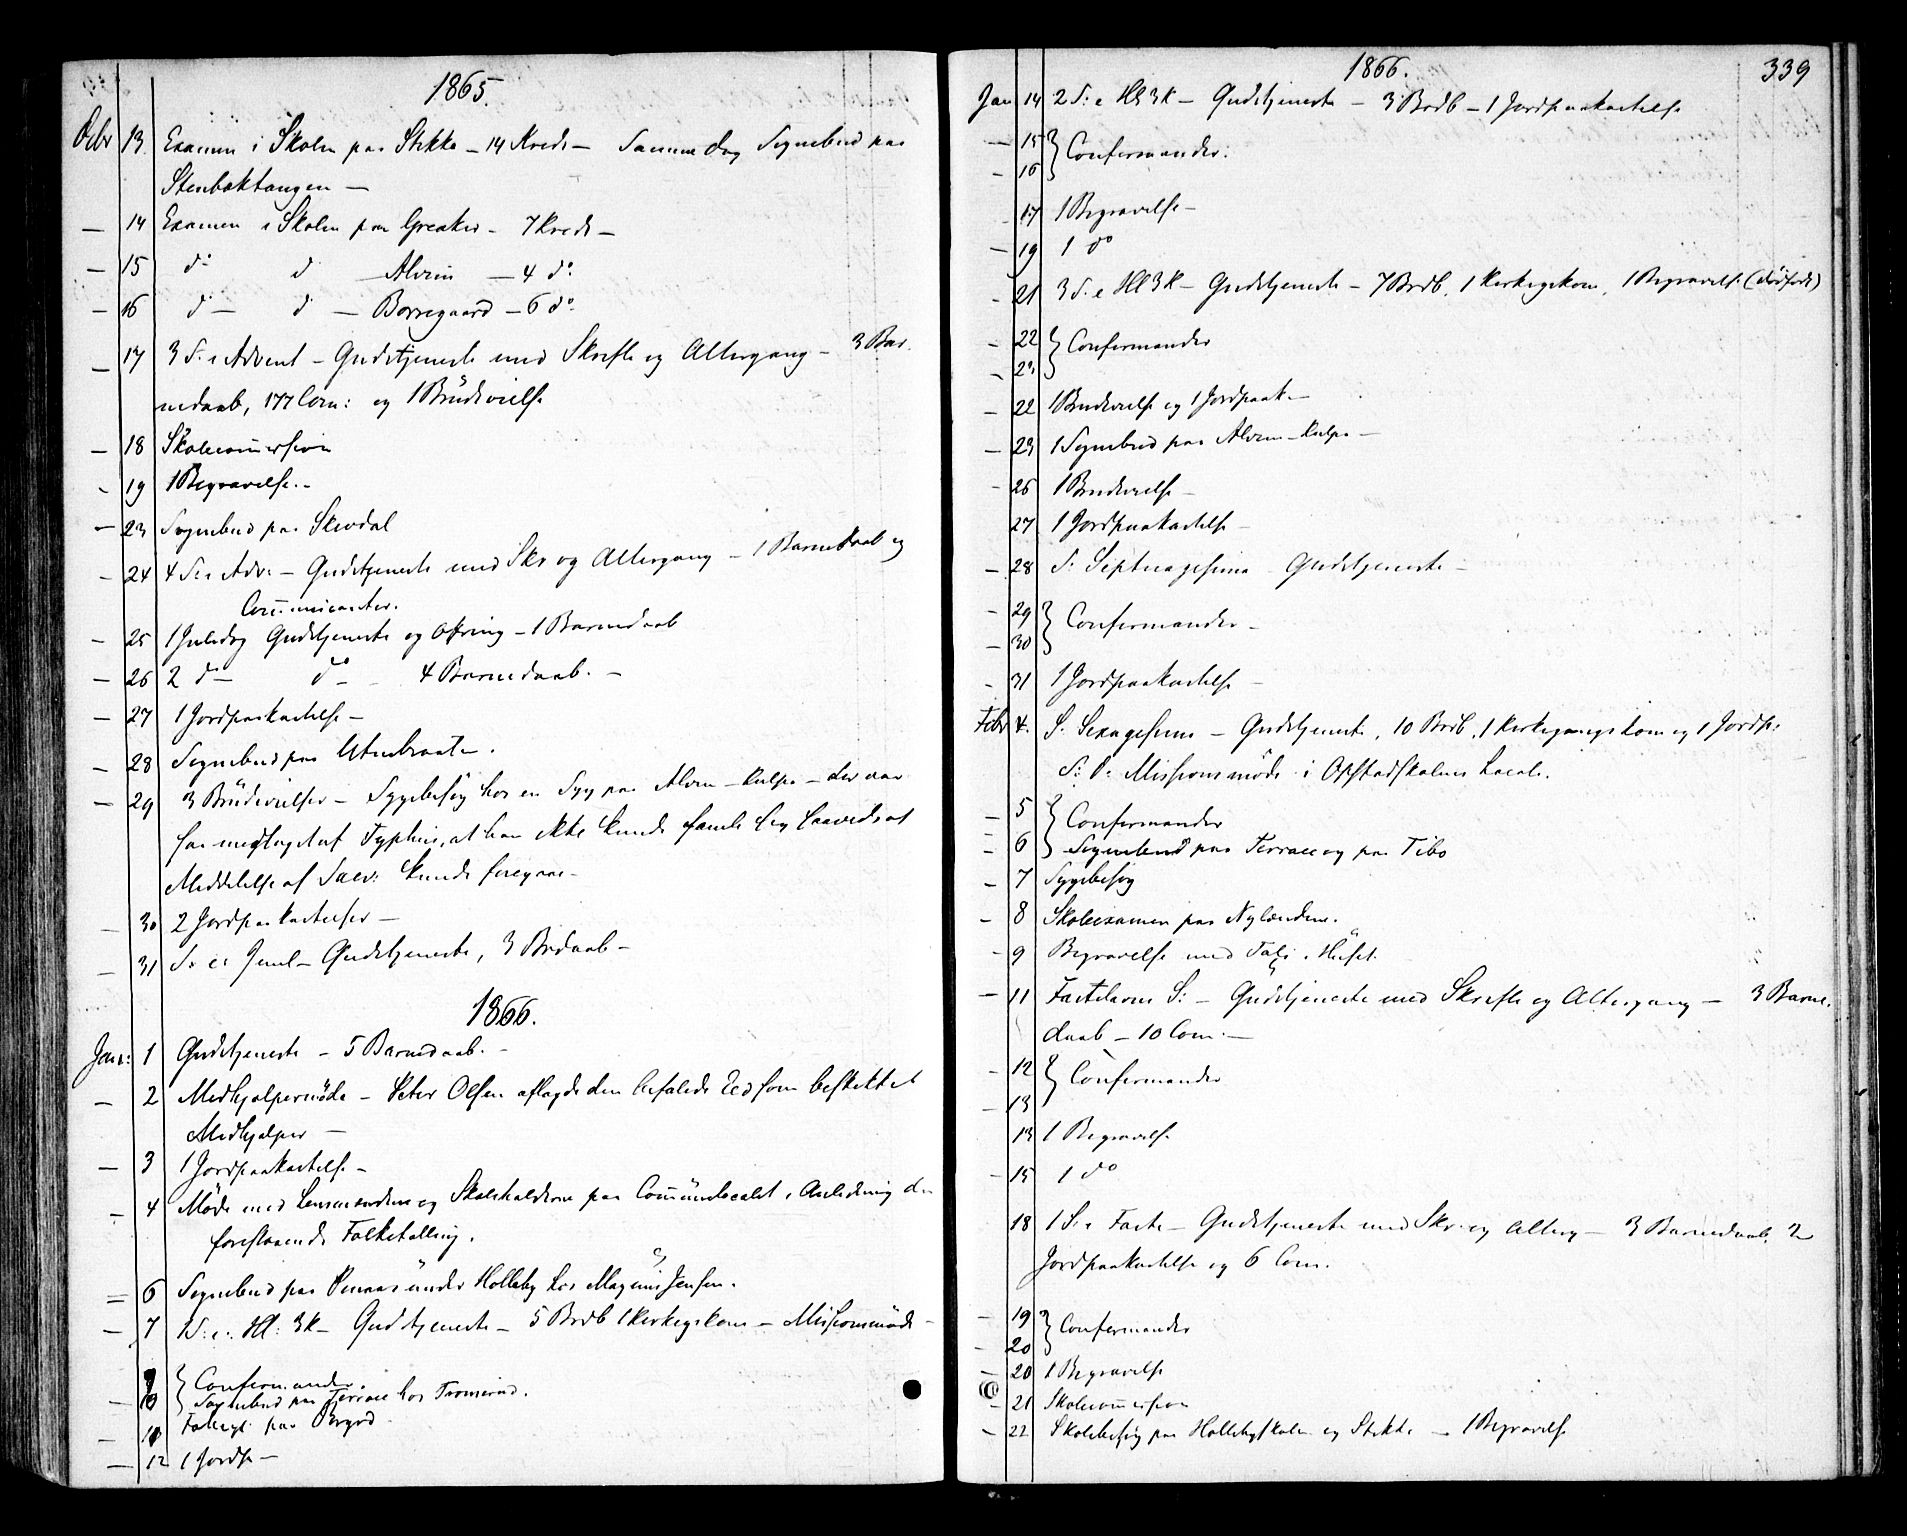 1865.
Decbr 13. Examen i Skolen paa Stikka – 14 Kreds – Samme Dag Sognebud paa
Stenbaktangen –
– 14 Examen i Skolen paa Greaker – 7 Kreds –
– 15 do d – Alvim – 4 do
– 16 d – d – Borregaard – 6 do
– 17 3 S. i Advent – Gudstjeneste med Skrifte og Altergang – 3 Bar-
nedaab, 17 Com: og 1 Brudevielse
– 18 Skolecommission
– 19 1 Begravelse. –
– 23 Sognebud paa
– 24 4 S. i Adv: – Gudstjeneste med Skr og Altergang – 1 Barnedaab og
Communicanter.
– 25 1 Juledag Gudstjeneste og Ofring – 1 Barnedaab
– 26 2 d – do – 4 Barnedaab. –
– 27 1 Jordpaakastelse –
– 28 Sognebud paa
– 29 3 Brudevielser – Sygebesøg hos en Syg paa Alvim – der var
saa medtaget af Typhus, at han ikke kunde samle sig saavidt at
Meddelelse af Sacr: kunde foregaae –
– 30 2 Jordpaakastelser –
– 31 S. e. Juul – Gudstjeneste, 3 Bdaab –
1866.
Janr: 1 Gudstjeneste – 5 Barnedaab. –
– 2 Medhjælpermøde – Peter Olsen aflagde den befalede Eed som beskikket
Medhjælper –
– 3 1 Jordpaakastelse –
– 4 Møde med Lensmændene og Skoleholderne paa Communelocalet i Anledning den
forestaaende Folketælling.
– 6 Sognebud paa under Holleby hos Magnus Jensen.
– 7 1 S: e: Hl: 3K – Gudstjeneste – 5 Brdb 1 Kirkegskone – Missionsmøde –
9 } Confirmander.
– 10 Sognebud paa Terrace hos
– 11 paa
– 12 1 Jordp –
1866. 339
Jan 14 2 S: e Hl 3K – Gudstjeneste – 3 Brdb – 1 Jordpaakastelse
– 15 } Confirmander.
– 16
– 17 1 Begravelse –
– 19 1 do
– 21 3 S. e Hl 3K – Gudstjeneste – 7 Brdb, 1 Kirkegskone, 1 Begravelse (dødfødt)
– 22 } Confirmander
– 23
– 22 1 Brudevielse og 1 Jordpaak –
– 23 1 Sognebud paa Alvim –
– 26 1 Brudevielse –
27 1 Jordpaakastelse –
– 28 S. Septuagesima Gudstjeneste –
– 29 } Confirmander –
– 30
– 31 1 Jordpaakastelse –
Febr 4. S. Sexagesima – Gudstjeneste, 10 Brdb, 1 Kirkegangskone og 1 Jordp:
S: D: Missionsmøde i Opstadskolens Locale.
– 5 } Confirmander
– 6 Sognebud paa Terrace og paa Tibo
– 7 Sygebesøg
– 8 Skoleexamen paa Nylændene.
– 9 Begravelse med Tale i Huset.
– 11 Fastelavns S: – Gudstjeneste med Skrifte og Altergang – 3 Barne-
daab – 10 Com: –
– 12 } Confirmander
– 13
13 1 Begravelse
– 15 1 do
18 1 S. i Faste – Gudstjeneste med Skr. og Alterg – 3 Barnedaab, 2
Jordpaakastelse og 6 Com.
– 19 } Confirmander
– 20
– 20 1 Begravelse
– 21 Skolecommission
– 22 Skolebesøg paa Hollebyskolen og Stikka – 1 Begravelse